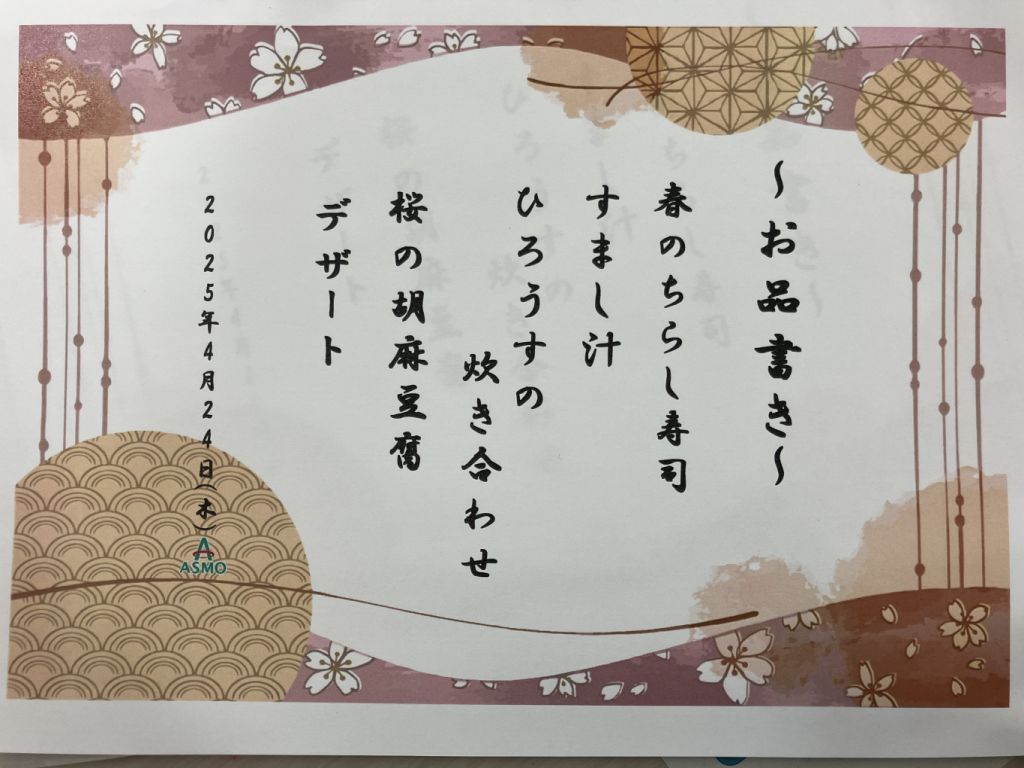 ～お品書き～
春のちらし寿司
すまし汁
ひろうすの
炊き合わせ
桜の胡麻豆腐
デザート
2025年4月24日(木)
A
ASMO